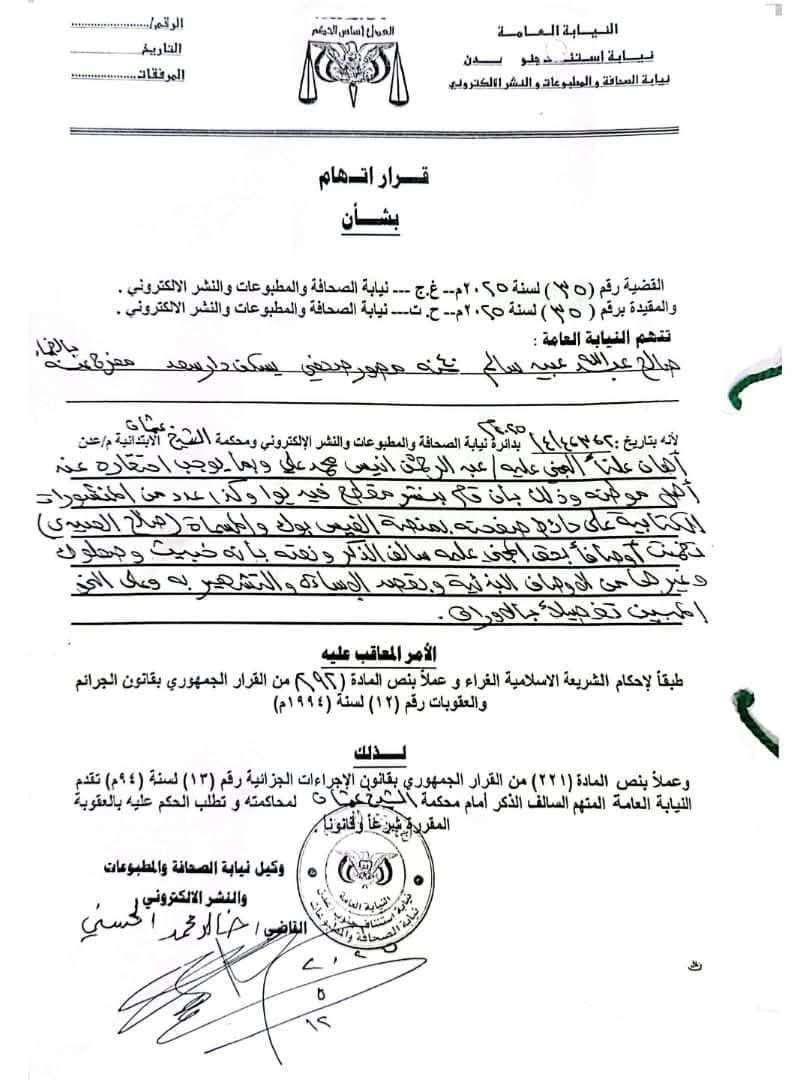 النيابة العامة
نيابة استئناف جنوب عدن
نيابة الصحافة والمطبوعات والنشر الالكتروني
العدل اساس الحكم
الرقم/
التاريخ
المرفقات
قرار اتهام
بشأن
القضية رقم (٣٥) لسنة ٢٠٢٥م-- غ.ج --- نيابة الصحافة والمطبوعات والنشر الالكتروني .
والمقيدة برقم (٣٥) لسنة ٢٠٢٥م-- ح.ت--- نيابة الصحافة والمطبوعات والنشر الالكتروني .
تتهم النيابة العامة :
صالح عبدالله عبيد سالم ٤٠ سنه مصور صحفي يسكن دار سعد مفرج عنه بالضمان
لأنه بتاريخ بدائرة نيابة الصحافة والمطبوعات والنشر الإلكتروني ومحكمة الشيخ عثمان الابتدائية م/عدن
أهان علناً المجني عليه/ عبد الرحمن انيس محمد علي وبما يوجب احتقاره عند
أهل موطنه وذلك بأن قام بنشر مقطع فيديو وكذا عدد من المنشورات
الكتابية على حائط صفحته بمنصة الفيس بوك والمسماة (صالح العبيدي)
تضمنت أوصافاً بحق المجني عليه سالف الذكر ونعته بأنه خبيث وصعلوك
وغيرها من الاوصاف البذئية وبقصد الإساءة والتشهير به وعلى النحو
المبين تفصيلاً بالاوراق.
الأمر المعاقب عليه
طبقاً لإحكام الشريعة الاسلامية الغراء و عملاً بنص المادة (٢٩٢) من القرار الجمهوري بقانون الجرائم
والعقوبات رقم (١٢) لسنة (١٩٩٤م)
لذلك
وعملاً بنص المادة (٢٢١) من القرار الجمهوري بقانون الإجراءات الجزائية رقم (١٣) لسنة (٩٤م) تقدم
النيابة العامة المتهم السالف الذكر أمام محكمة الشيخ عثمان لمحاكمته و تطلب الحكم عليه بالعقوبة
المقررة شرعاً وقانوناً .
وكيل نيابة الصحافة والمطبوعات
والنشر الالكتروني
القاضي/ خالد محمد الحسني
النيابة العامة
نيابة استئناف جنوب عدن
نيابة الصحافة والمطبوعات
٢٠٢٥
٥
١٢